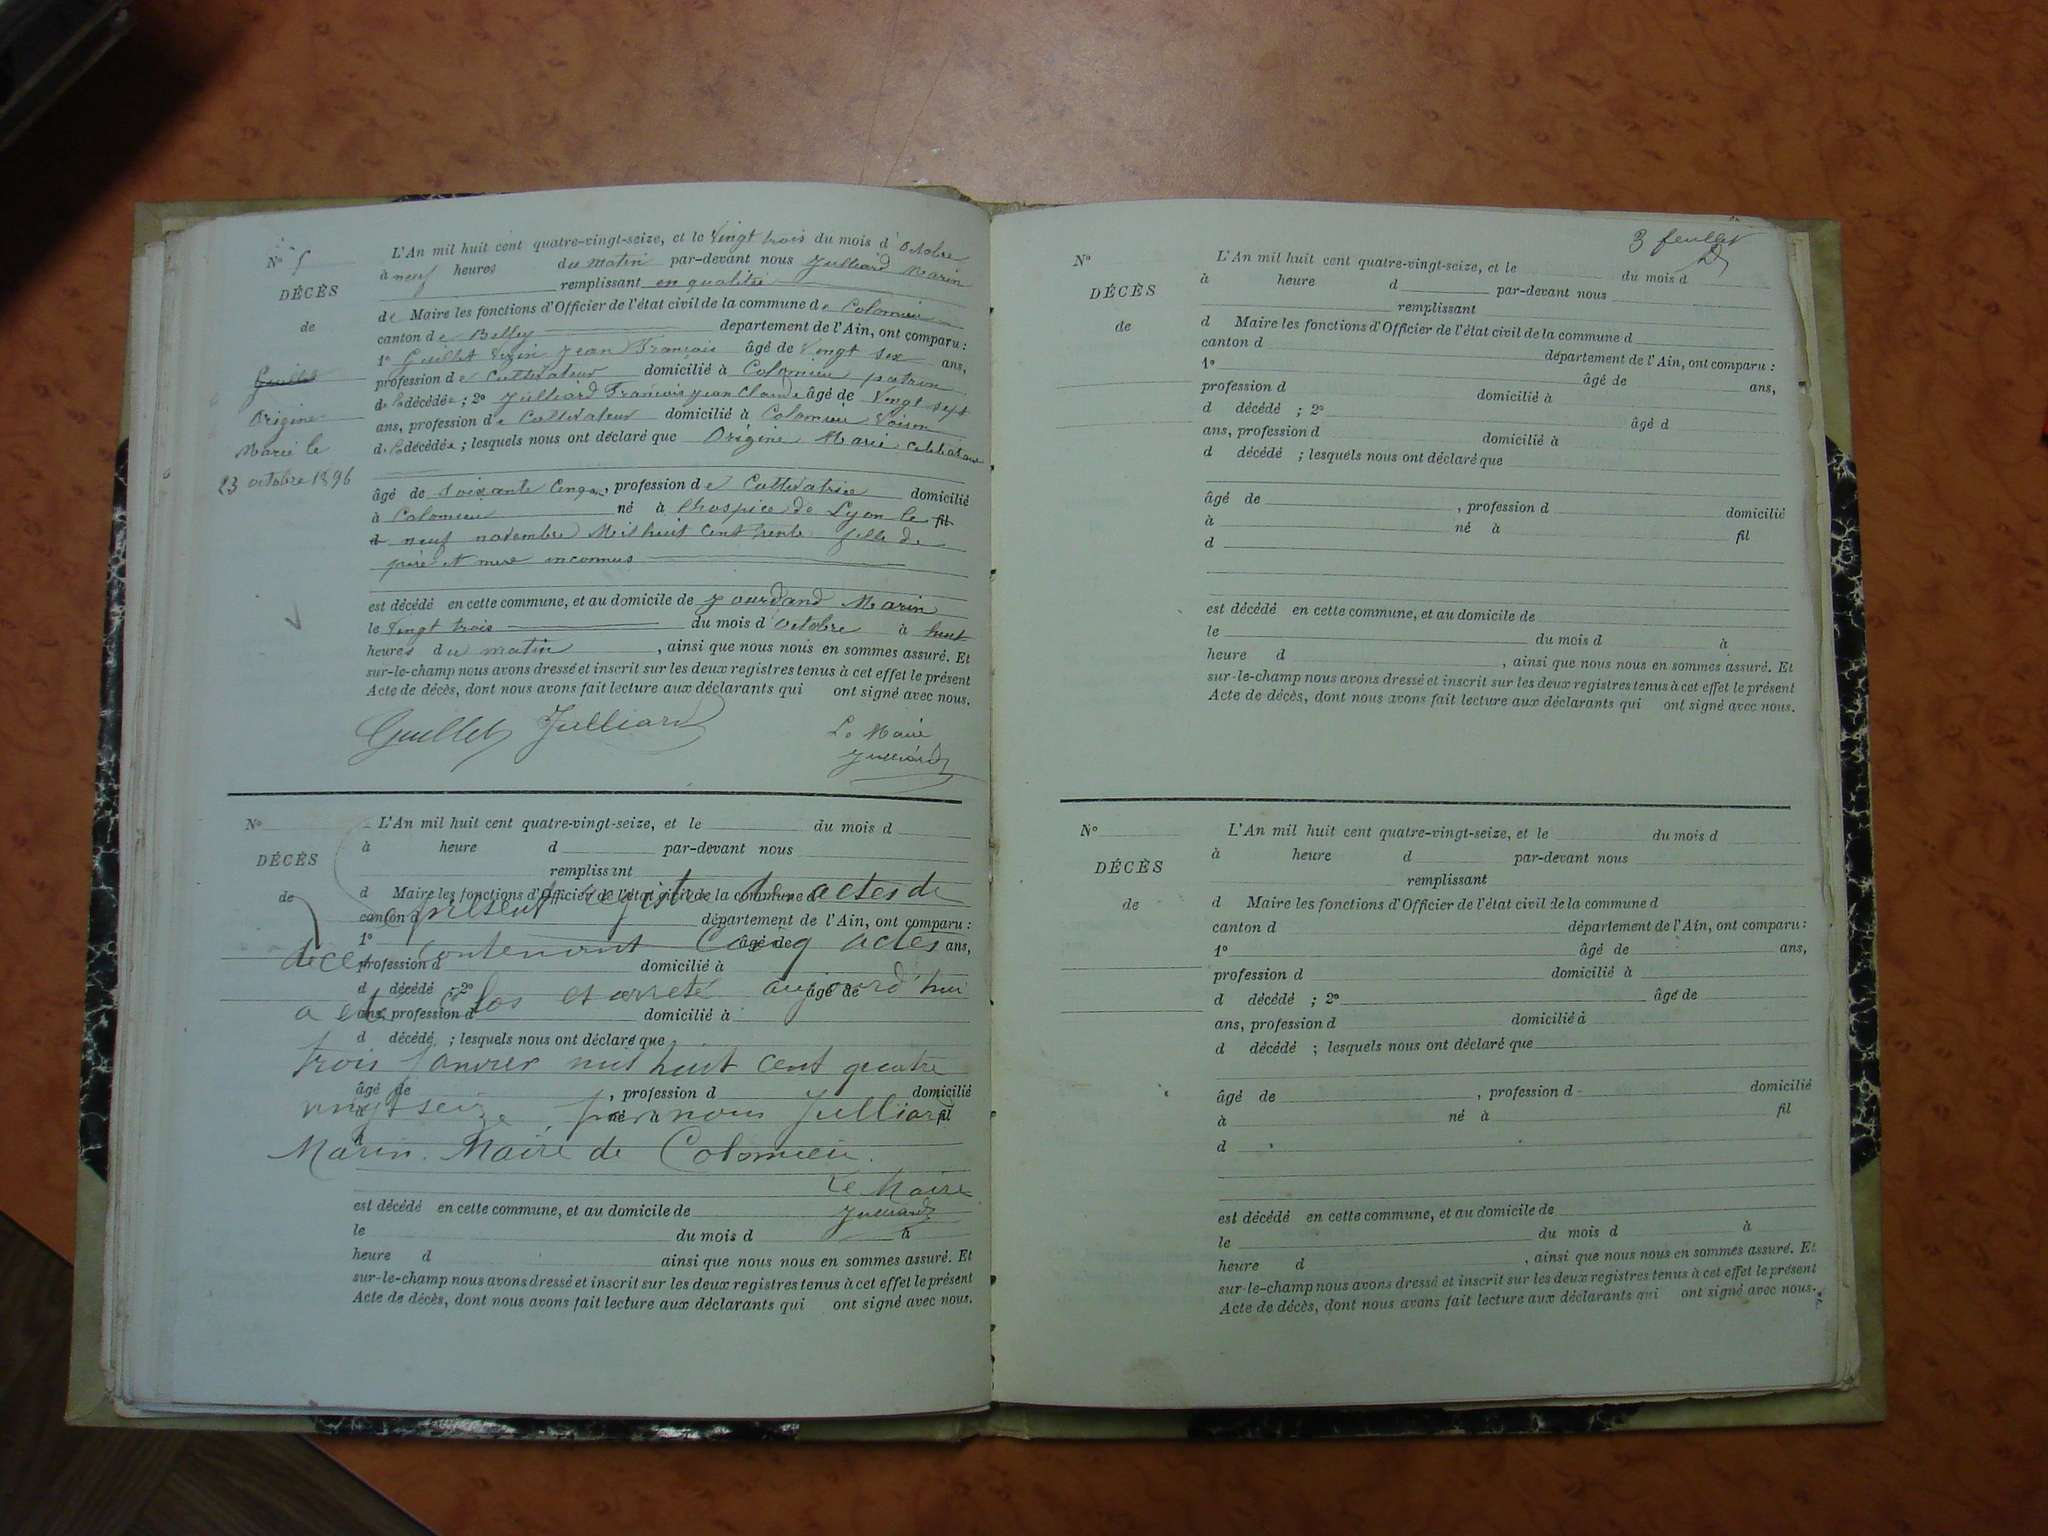 N° 5
DÉCÈS
de
Guillet
Origine
Marie le
23 octobre 1896
L'An mil huit cent quatre-vingt-seize, et le Vingt trois du mois d'Octobre
à neuf heures du matin par-devant nous Julliard Marin
remplissant en qualité
de Maire les fonctions d'Officier de l'état civil de la commune de Colomieu
canton de Belley département de l'Ain, ont comparu :
1° Guillet Jean François âgé de Vingt six ans,
profession de Cultivateur domicilié à Colomieu patron
de la décédée ; 2° Julliard François Jean Claude âgé de Vingt sept
ans, profession de Cultivateur domicilié à Colomieu Voisin
de la décédée ; lesquels nous ont déclaré que Origine Marie
âgé de soixante Cinq ans, profession de Cultivatrice domicilié
à Colomieu né à lhospice de Lyon le fil
d neuf novembre Mil huit Cent trente fille de
père et mere inconnus
est décédé en cette commune, et au domicile de Jourdand Marin
le Vingt trois du mois d'Octobre à huit
heures du matin, ainsi que nous nous en sommes assuré. Et
sur-le-champ nous avons dressé et inscrit sur les deux registres tenus à cet effet le présent
Acte de décès, dont nous avons fait lecture aux déclarants qui ont signé avec nous.
Guillet Julliard
Le Maire
Julliard
N°
DÉCÈS
de
L'An mil huit cent quatre-vingt-seize, et le du mois d
à heure d par-devant nous
remplissant
d Maire les fonctions d'Officier de l'état civil de la commune d
présent registre des actes de
canton d département de l'Ain, ont comparu :
1° âgé de ans,
décès contenant Cinq actes
profession d domicilié à
d décédé ; 2° âgé de
a été clos et arreté aujourd'hui
ans, profession d domicilié à
d décédé ; lesquels nous ont déclaré que
trois Janvier mil huit cent quatre
âgé de , profession d domicilié
vingt seize, par nous Julliard
né à fil
d
Marin. Maire de Colomieu.
Le Maire
Julliard
est décédé en cette commune, et au domicile de
le du mois d à
heure d ainsi que nous nous en sommes assuré. Et
sur-le-champ nous avons dressé et inscrit sur les deux registres tenus à cet effet le présent
Acte de décès, dont nous avons fait lecture aux déclarants qui ont signé avec nous.
3 feuillet
N°
DÉCÈS
de
L'An mil huit cent quatre-vingt-seize, et le du mois d
à heure d par-devant nous
remplissant
d Maire les fonctions d'Officier de l'état civil de la commune d
canton d département de l'Ain, ont comparu :
1° âgé de ans,
profession d domicilié à
d décédé ; 2° âgé d
ans, profession d domicilié à
d décédé ; lesquels nous ont déclaré que
âgé de , profession d domicilié
à né à fil
d
est décédé en cette commune, et au domicile de
le du mois d à
heure d , ainsi que nous nous en sommes assuré. Et
sur-le-champ nous avons dressé et inscrit sur les deux registres tenus à cet effet le présent
Acte de décès, dont nous avons fait lecture aux déclarants qui ont signé avec nous.
N°
DÉCÈS
de
L'An mil huit cent quatre-vingt-seize, et le du mois d
à heure d par-devant nous
remplissant
d Maire les fonctions d'Officier de l'état civil de la commune d
canton d département de l'Ain, ont comparu :
1° âgé de ans,
profession d domicilié à
d décédé ; 2° âgé de
ans, profession d domicilié à
d décédé ; lesquels nous ont déclaré que
âgé de , profession d domicilié
à né à fil
d
est décédé en cette commune, et au domicile de
le du mois d à
heure d , ainsi que nous nous en sommes assuré. Et
sur-le-champ nous avons dressé et inscrit sur les deux registres tenus à cet effet le présent
Acte de décès, dont nous avons fait lecture aux déclarants qui ont signé avec nous.